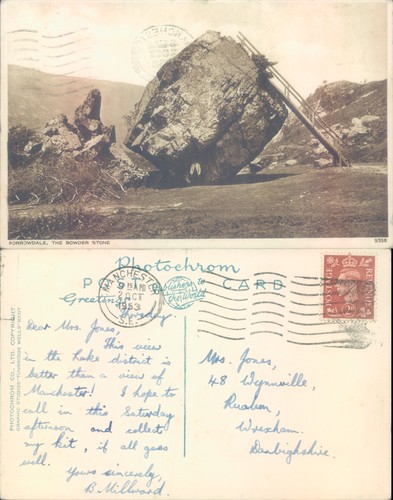 BORROWDALE, THE BOWDER STONE
Photochrom
POST CARD
Publishers to
the World
MANCHESTER
2 OCT
1953
S.E.
POSTAGE
REVENUE
PHOTOCHROM CO., LTD. COPYRIGHT
Greetings
Dear Mrs. Jones,
This view
in the Lake district is
better than a view of
Manchester! I hope to
call in this Saturday
afternoon and collect
my kit, if all goes
well.
Yours sincerely,
B. Millward
Mrs. Jones,
48 Wynnville,
Ruabon,
Wrexham.
Denbighshire.